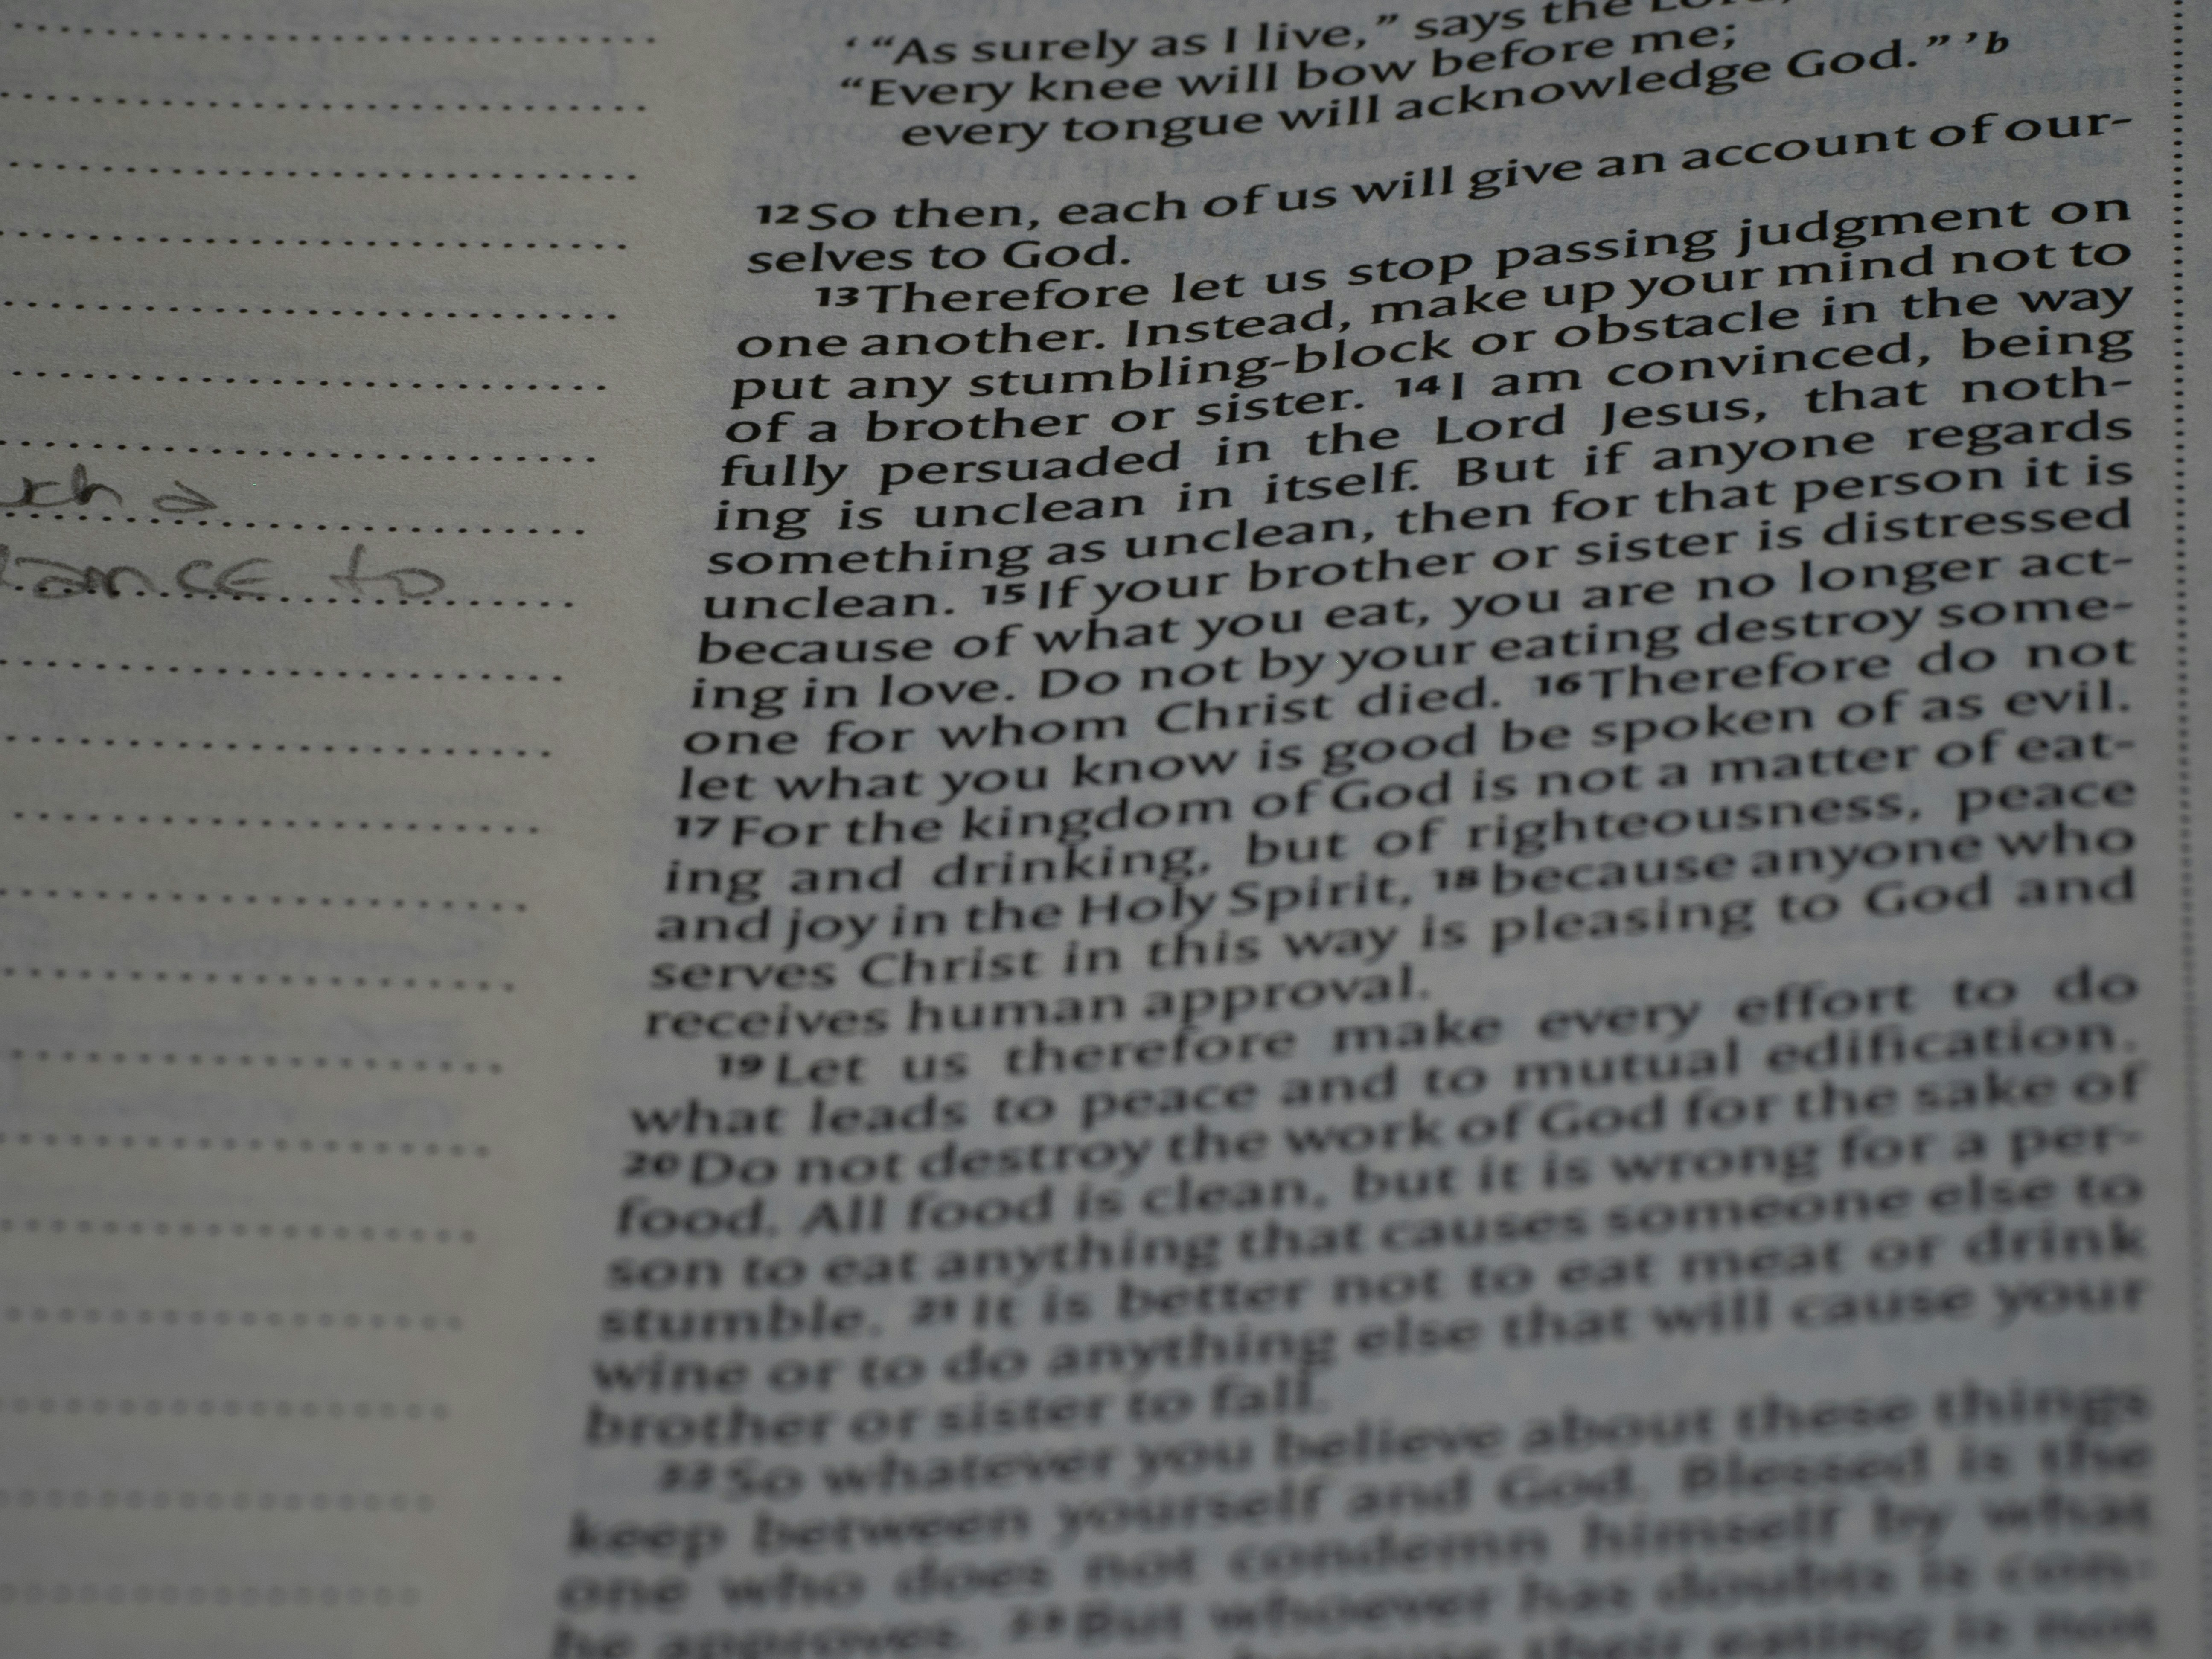 ‘ “As surely as I live,” says the Lord,
“Every knee will bow before me;
every tongue will acknowledge God.” ’b
12 So then, each of us will give an account of our-
selves to God.
13 Therefore let us stop passing judgment on
one another. Instead, make up your mind not to
put any stumbling-block or obstacle in the way
of a brother or sister. 14 I am convinced, being
fully persuaded in the Lord Jesus, that noth-
ing is unclean in itself. But if anyone regards
something as unclean, then for that person it is
unclean. 15 If your brother or sister is distressed
because of what you eat, you are no longer act-
ing in love. Do not by your eating destroy some-
one for whom Christ died. 16 Therefore do not
let what you know is good be spoken of as evil.
17 For the kingdom of God is not a matter of eat-
ing and drinking, but of righteousness, peace
and joy in the Holy Spirit, 18 because anyone who
serves Christ in this way is pleasing to God and
receives human approval.
19 Let us therefore make every effort to do
what leads to peace and to mutual edification.
20 Do not destroy the work of God for the sake of
food. All food is clean, but it is wrong for a per-
son to eat anything that causes someone else to
stumble. 21 It is better not to eat meat or drink
wine or to do anything else that will cause your
brother or sister to fall.
22 So whatever you believe about these things
keep between yourself and God. Blessed is the
one who does not condemn himself by what
he approves. 23 But whoever has doubts is con-
their eating is not
to